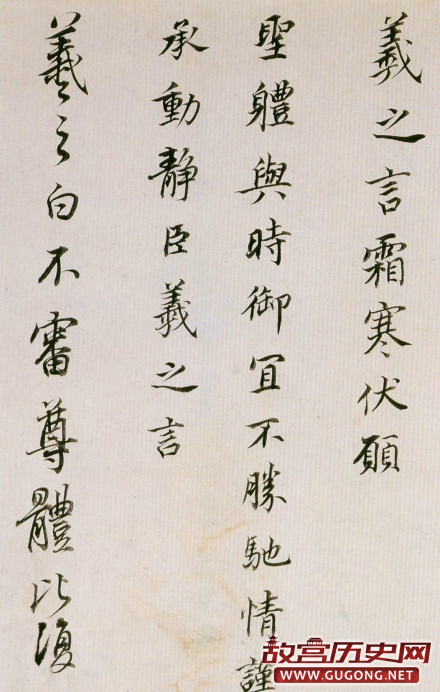 羲之言霜寒伏願
聖軆與時御宜不勝馳情謹
承動静臣羲之言
羲之白不審尊體比復
故宫历史网
WWW.GUGONG.NET